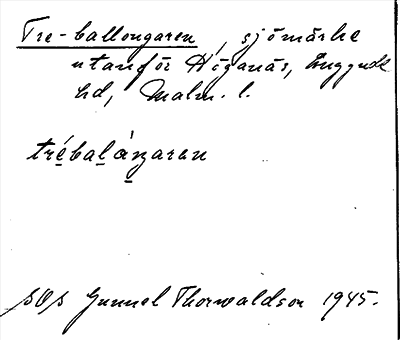 Tre-ballongaren, sjömärke
utanför Höganäs, Luggude
hd, Malm. l.
trébaláŋaren
SOS Gunnel Thorwaldson 1945.